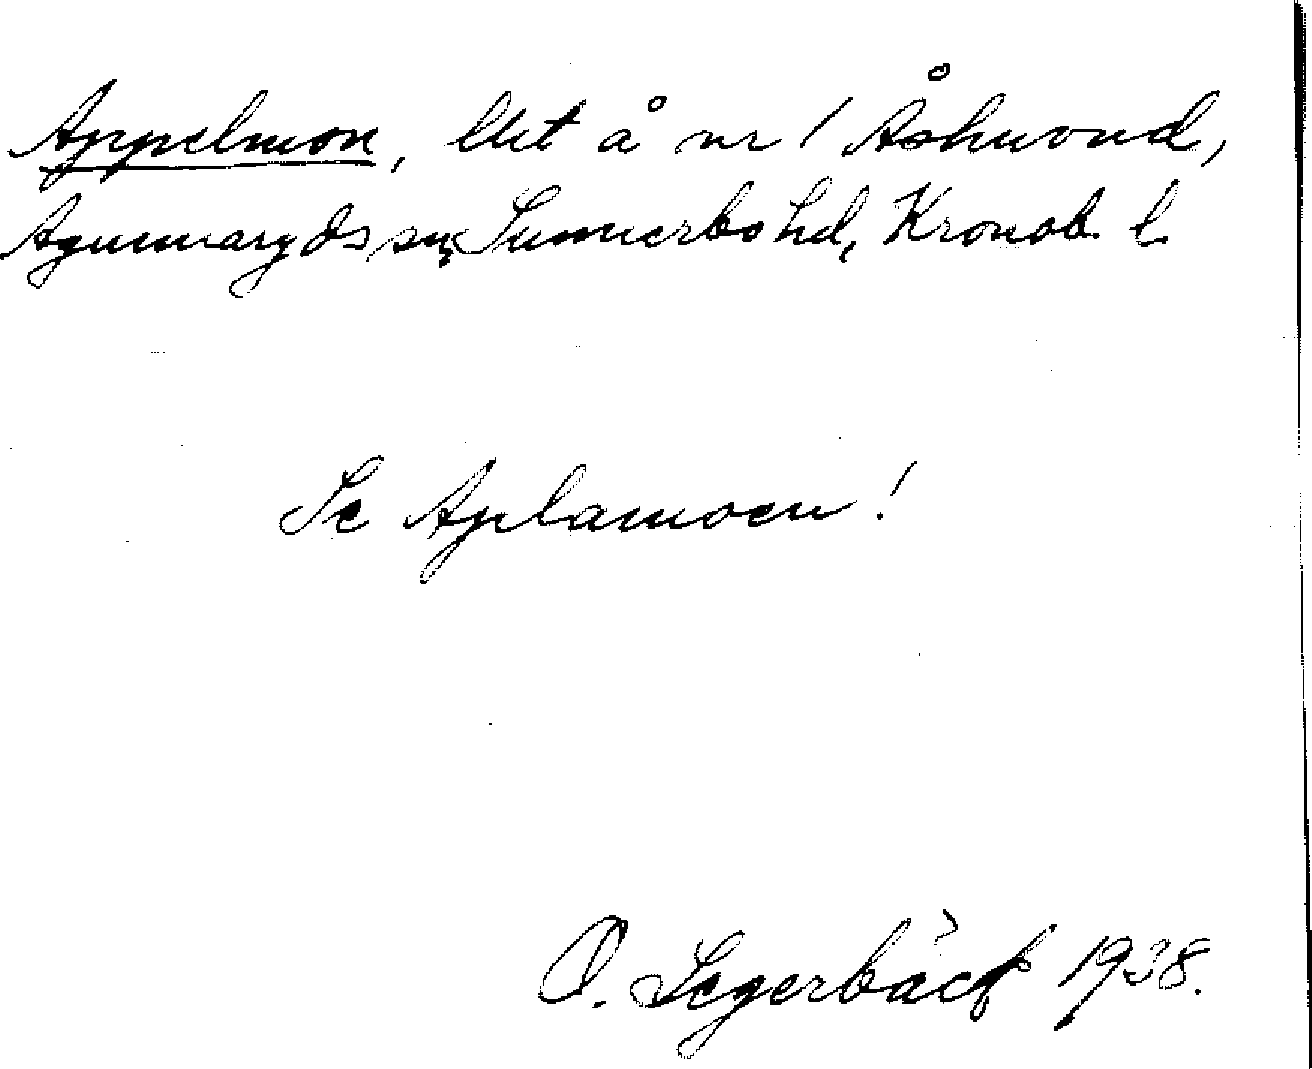 Appelmon, lht å nr 1 Åshuvud,
Agunnaryds sn, Sunnerbo hd, Kronob. l.
Se Aplamoen!
O. Segerbäck 1938.